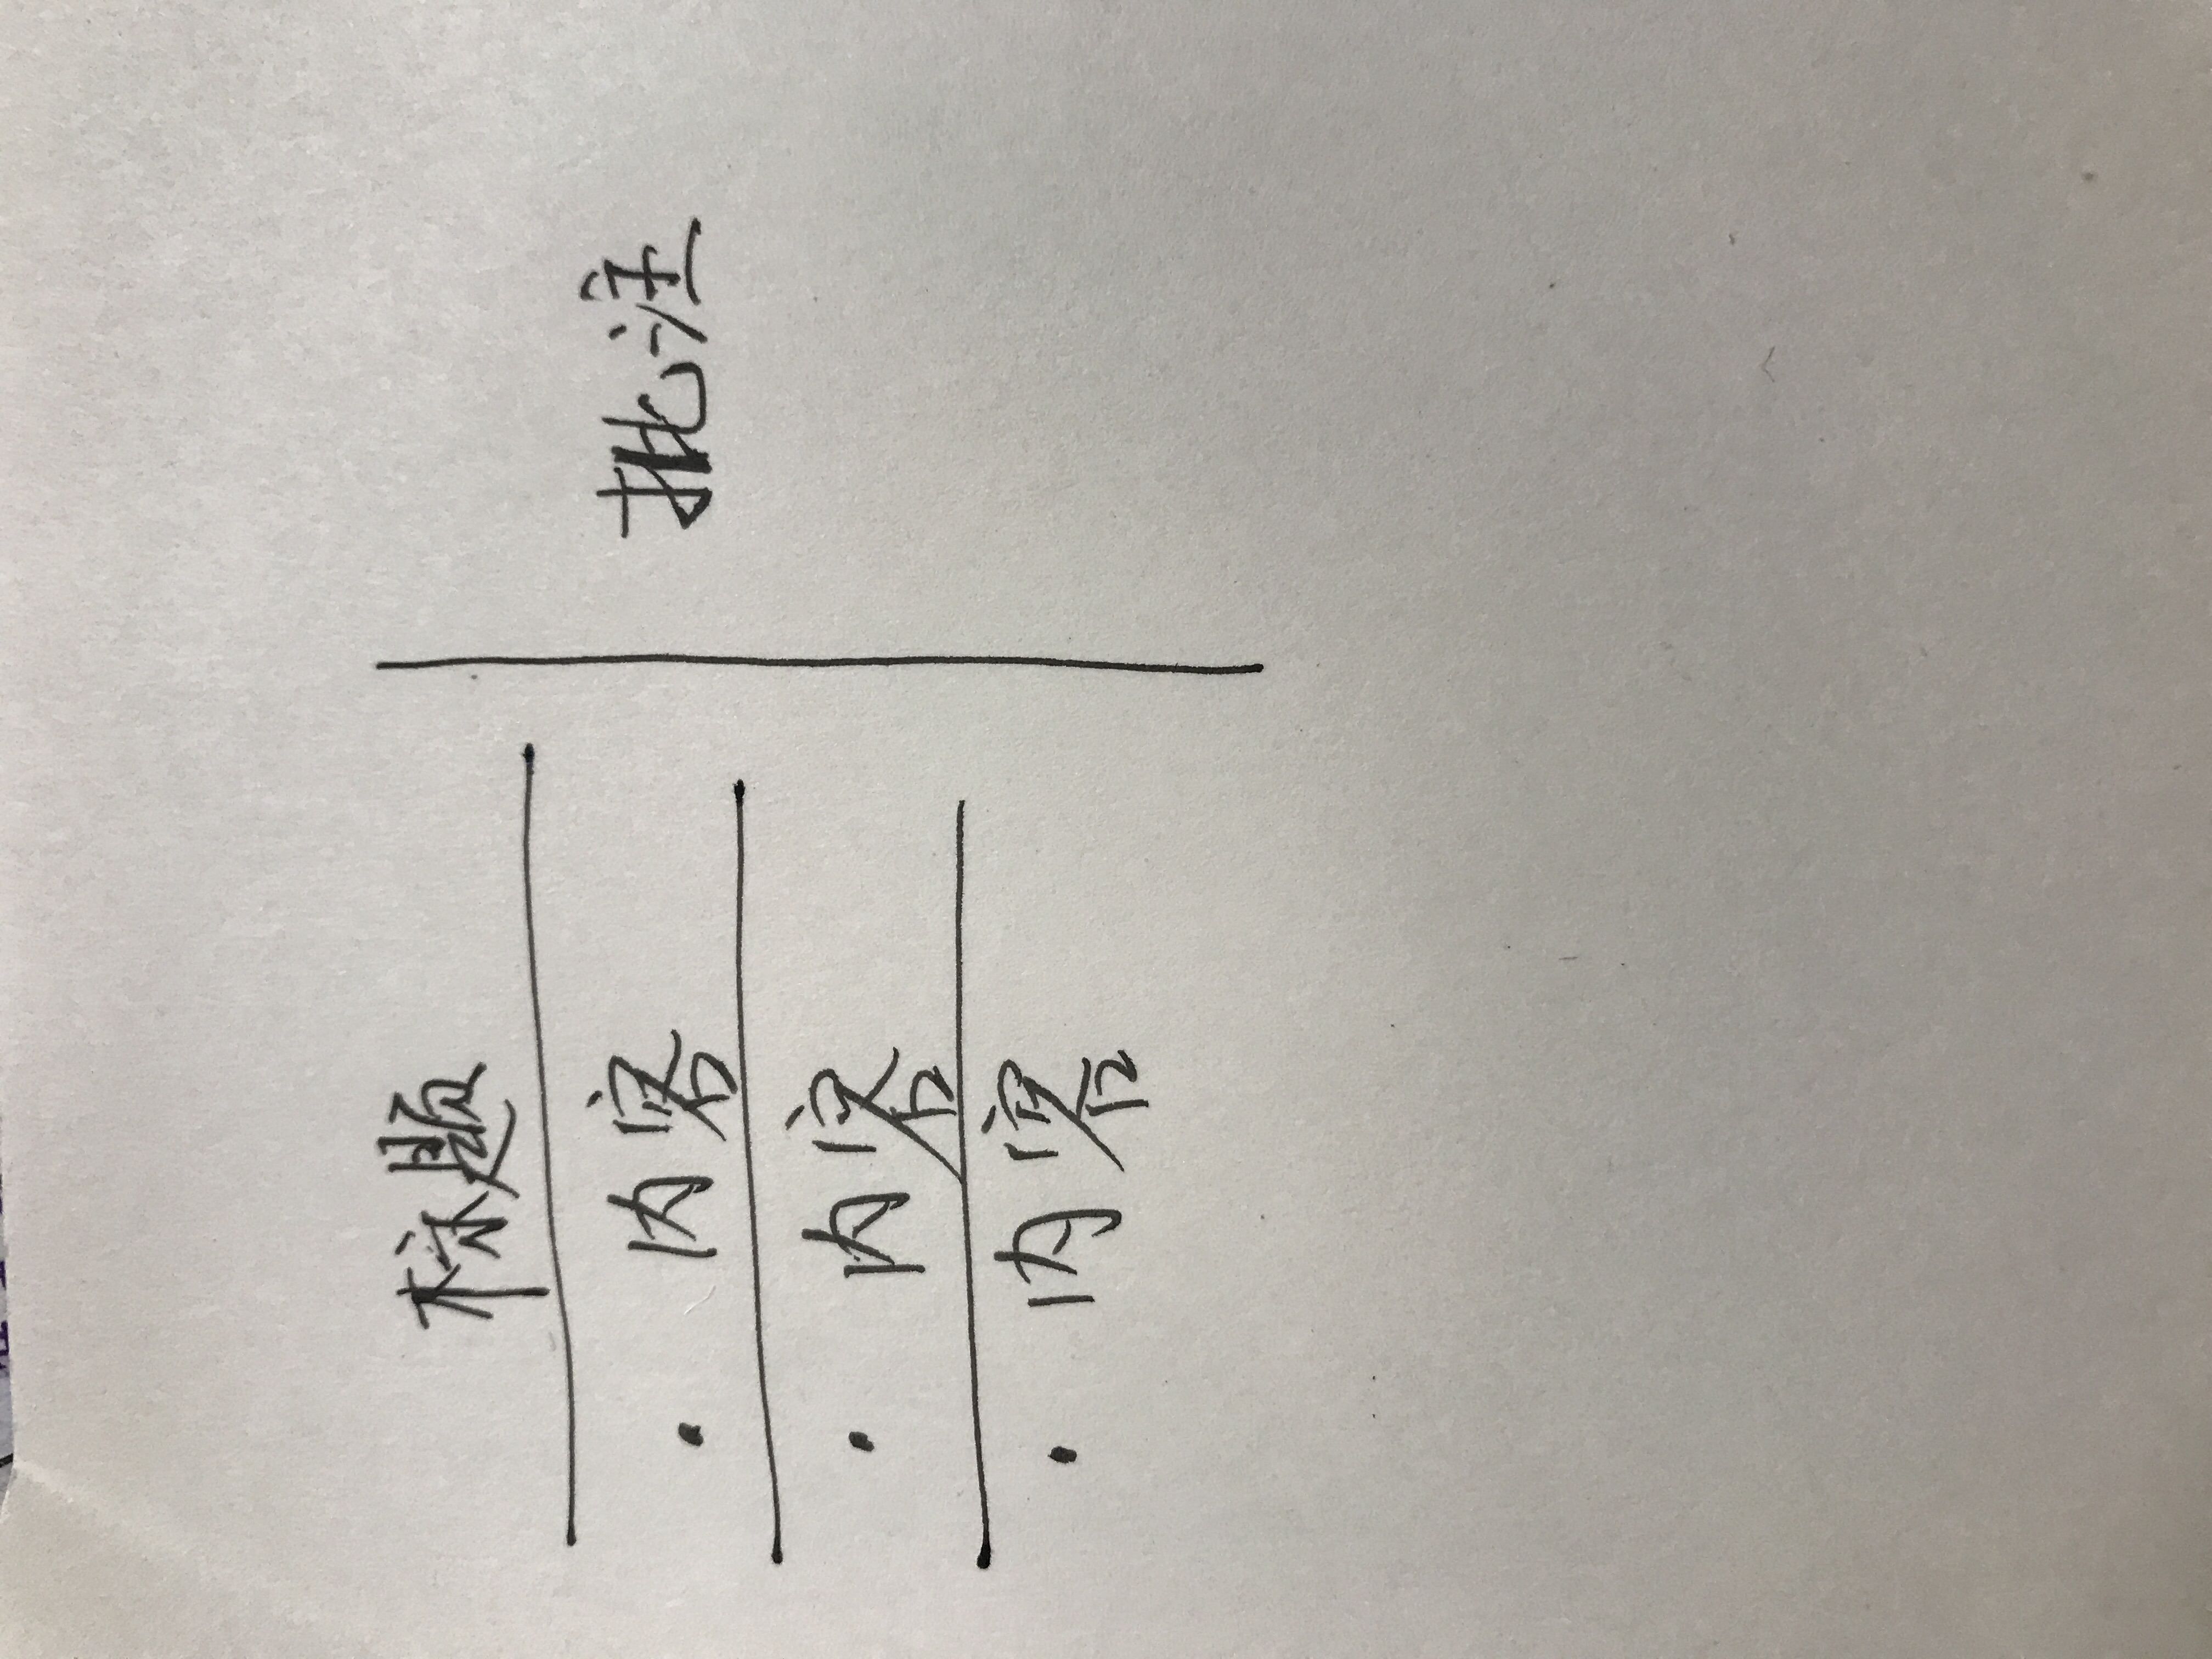 标题
· 内容
· 内容
· 内容
批注